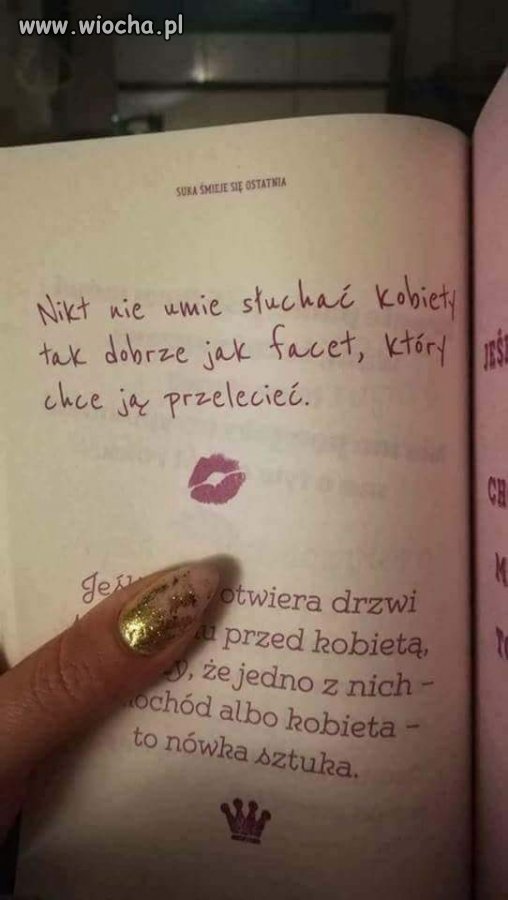 www.wiocha.pl
SUKA ŚMIEJE SIĘ OSTATNIA
Nikt nie umie słuchać kobiety
tak dobrze jak facet, który
chce ją przelecieć.
otwiera drzwi
przed kobietą,
że jedno z nich –
albo kobieta –
to nówka sztuka.